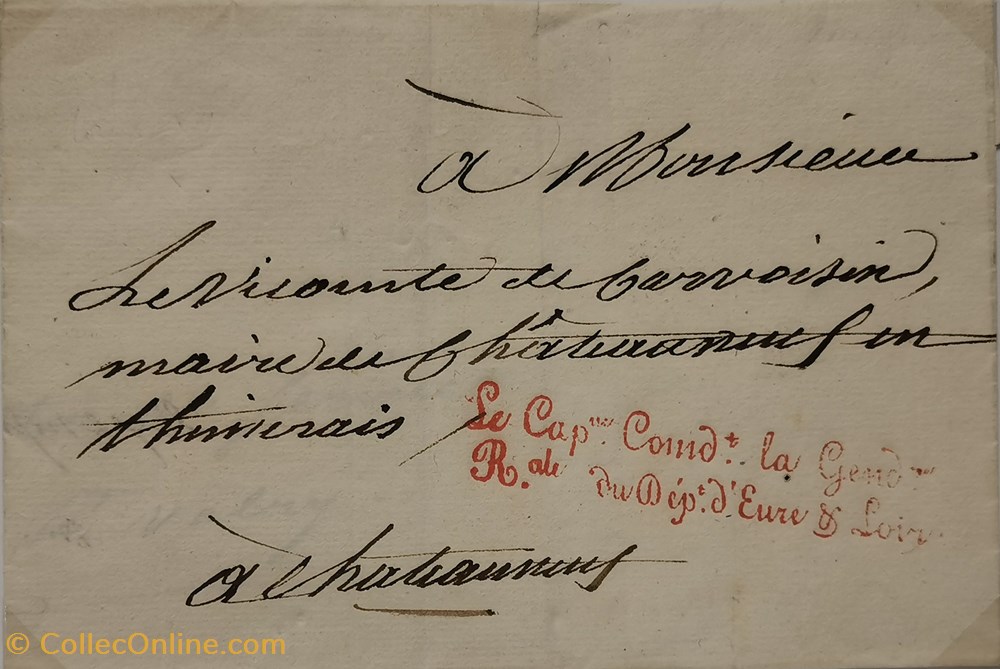 à Monsieur
Le Vicomte de Carvoisin,
maire de Châteauneuf en
thimerais
Le Cap.ne Comd.t la Gend.rie
R.ale du Dép.t d'Eure & Loir
à chateauneuf
© CollecOnline.com